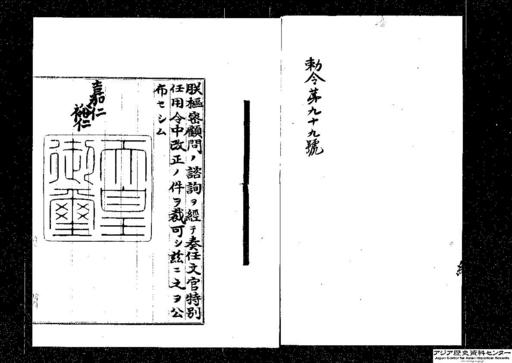 勅令第九十九號
朕樞密顧問ノ諮詢ヲ經テ奏任文官特別
任用令中改正ノ件ヲ裁可シ茲ニ之ヲ公
布セシム
嘉仁
裕仁
天皇
御璽
アジア歴史資料センター
Japan Center for Asian Historical Records